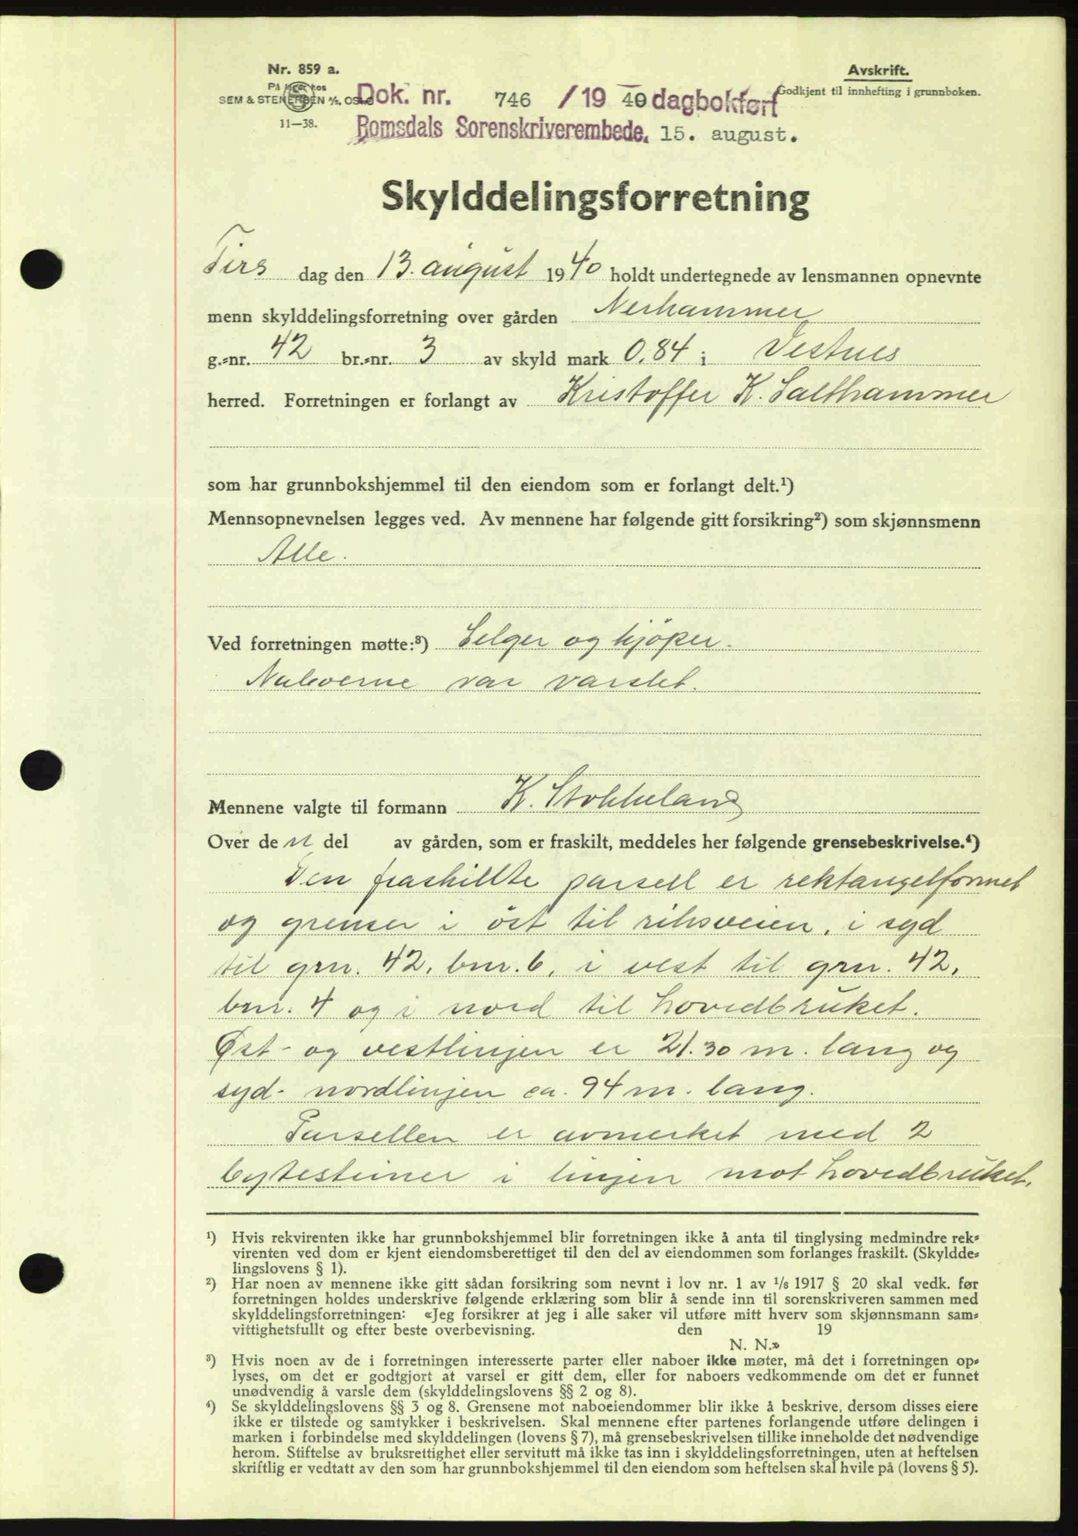 Nr. 859 a.
På lager hos
SEM & STENERSEN A/S, OSLO
11—38.
Avskrift.
Godkjent til innhefting i grunnboken.
Dok. nr. 746 / 19 40 dagbokført
Romsdals Sorenskriverembede, 15. august.
Skylddelingsforretning
Tirs dag den 13. august 1940 holdt undertegnede av lensmannen opnevnte
menn skylddelingsforretning over gården Nerhammer
g.-nr. 42 br.-nr. 3 av skyld mark 0,84 i Vestnes
herred. Forretningen er forlangt av Kristoffer K. Salthammer
som har grunnbokshjemmel til den eiendom som er forlangt delt.¹)
Mennsopnevnelsen legges ved. Av mennene har følgende gitt forsikring²) som skjønnsmenn
Alle.
Ved forretningen møtte:³) Selger og kjöper.
Naboerne var varslet.
Mennene valgte til formann K. Stokkeland
Over de n del av gården, som er fraskilt, meddeles her følgende grensebeskrivelse.⁴)
Den fraskillte parsell er rektangelformet
og grenser i öst til riksveien, i syd
til grn. 42, bnr. 6, i vest til grn. 42,
bnr. 4 og i nord til hovedbruket.
Øst- og vestlinjen er 21.30 m. lang og
syd- nordlinjen ca. 94 m. lang.
Parsellen er avmerket med 2
bytesteiner i linjen mot hovedbruket.
¹) Hvis rekvirenten ikke har grunnbokshjemmel blir forretningen ikke å anta til tinglysing medmindre rek-
virenten ved dom er kjent eiendomsberettiget til den del av eiendommen som forlanges fraskilt. (Skyldde-
lingslovens § 1).
²) Har noen av mennene ikke gitt sådan forsikring som nevnt i lov nr. 1 av 1/8 1917 § 20 skal vedk. før
forretningen holdes underskrive følgende erklæring som blir å sende inn til sorenskriveren sammen med
skylddelingsforretningen: «Jeg forsikrer at jeg i alle saker vil utføre mitt hverv som skjønnsmann sam-
vittighetsfullt og efter beste overbevisning. den 19
N. N.»
³) Hvis noen av de i forretningen interesserte parter eller naboer ikke møter, må det i forretningen op-
lyses, om det er godtgjort at varsel er gitt dem, eller for naboers vedkommende om det er funnet
unødvendig å varsle dem (skylddelingslovens §§ 2 og 8).
⁴) Se skylddelingslovens §§ 3 og 8. Grensene mot naboeiendommer blir ikke å beskrive, dersom disses eiere
ikke er tilstede og samtykker i beskrivelsen. Skal mennene efter partenes forlangende utføre delingen i
marken i forbindelse med skylddelingen (lovens § 7), må grensebeskrivelsen tillike inneholde det nødvendige
herom. Stiftelse av bruksrettighet eller servitutt må ikke tas inn i skylddelingsforretningen, uten at heftelsen
skriftlig er vedtatt av den som har grunnbokshjemmel til den eiendom som heftelsen skal hvile på (lovens § 5).